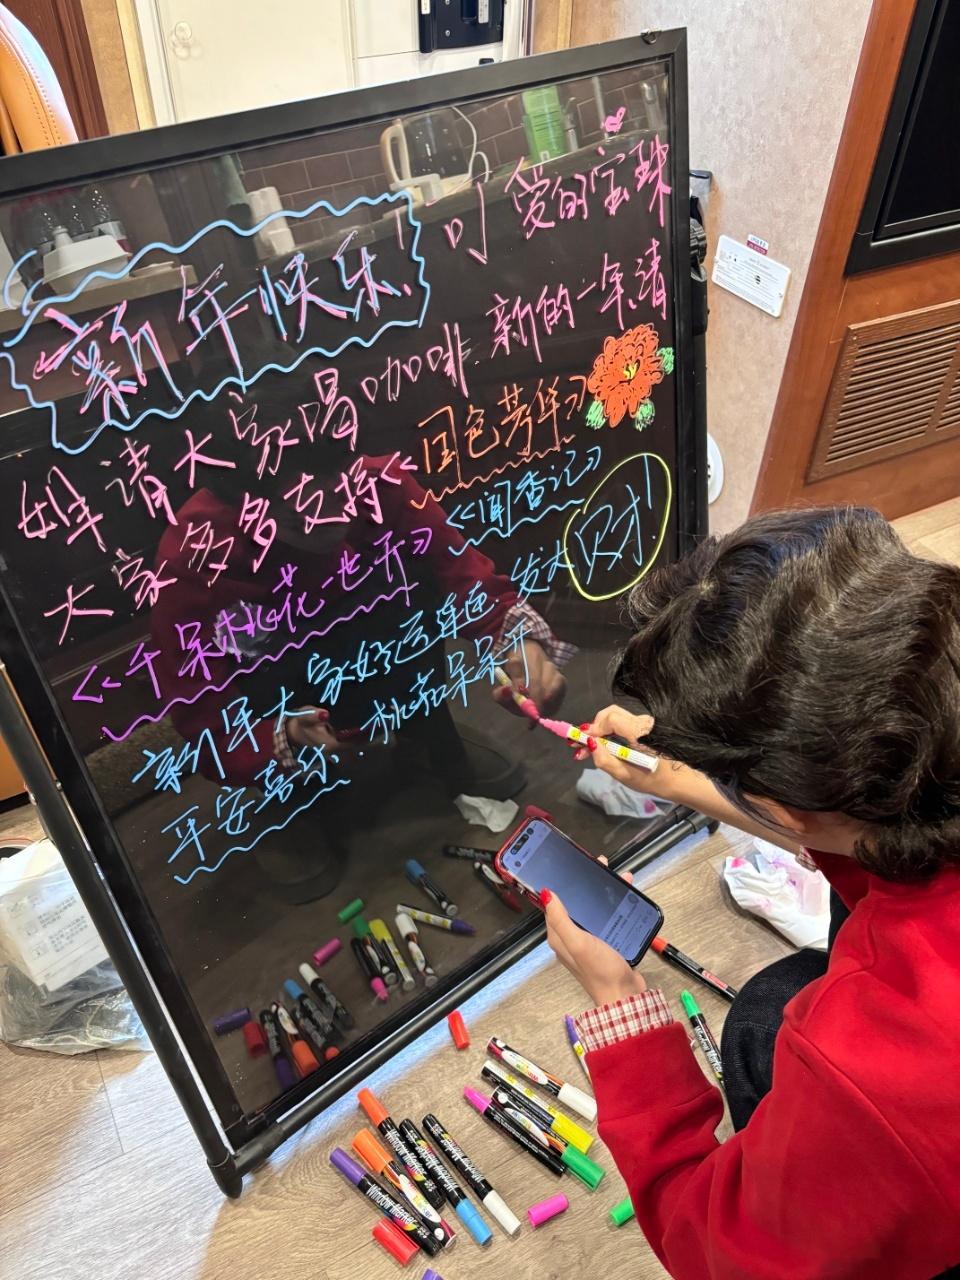 新年快乐! 可爱的宝珠
姐请大家喝咖啡.新的一年,请
大家多多支持《国色芳华》
《千朵桃花一世开》《闻香记》
新年大家好运连连.发大财!
平安喜乐.桃花朵朵开
Window Marker
Window Marker
Window Marker
Window Marker
Window Marker